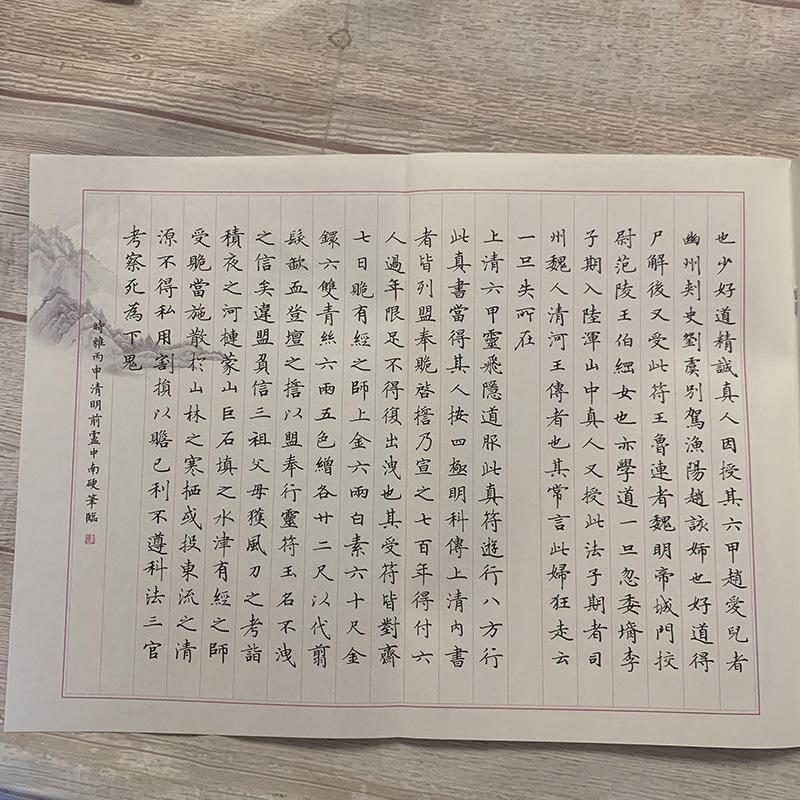 也少好道精誠真人因授其六甲趙愛兒者
幽州刾史劉虞別駕漁陽趙該姉也好道得
尸解後又受此符王魯連者魏明帝城門挍
尉范陵王伯綱女也亦學道一旦忽委壻李
子期入陸渾山中真人又授此法子期者司
州魏人清河王傳者也其常言此婦狂走云
一旦失所在
上清六甲靈飛隱道服此真符遊行八方行
此真書當得其人按四極明科傳上清內書
者皆列盟奉跪啓擔乃宣之七百年得付六
人過年限足不得復出洩也其受符皆對齋
七日跪有經之師上金六兩白素六十尺金
鐶六雙青絲六兩五色繒各廿二尺以代翦
髮歃血登壇之擔以盟奉行靈符玉名不洩
之信矣違盟負信三祖父母獲風刀之考詣
積夜之河槤蒙山巨石填之水津有經之師
受跪當施散於山林之寒栖或投東流之清
源不得私用割損以贍己利不遵科法三官
考察死為下鬼
時維丙申清明前靈中南硬筆臨